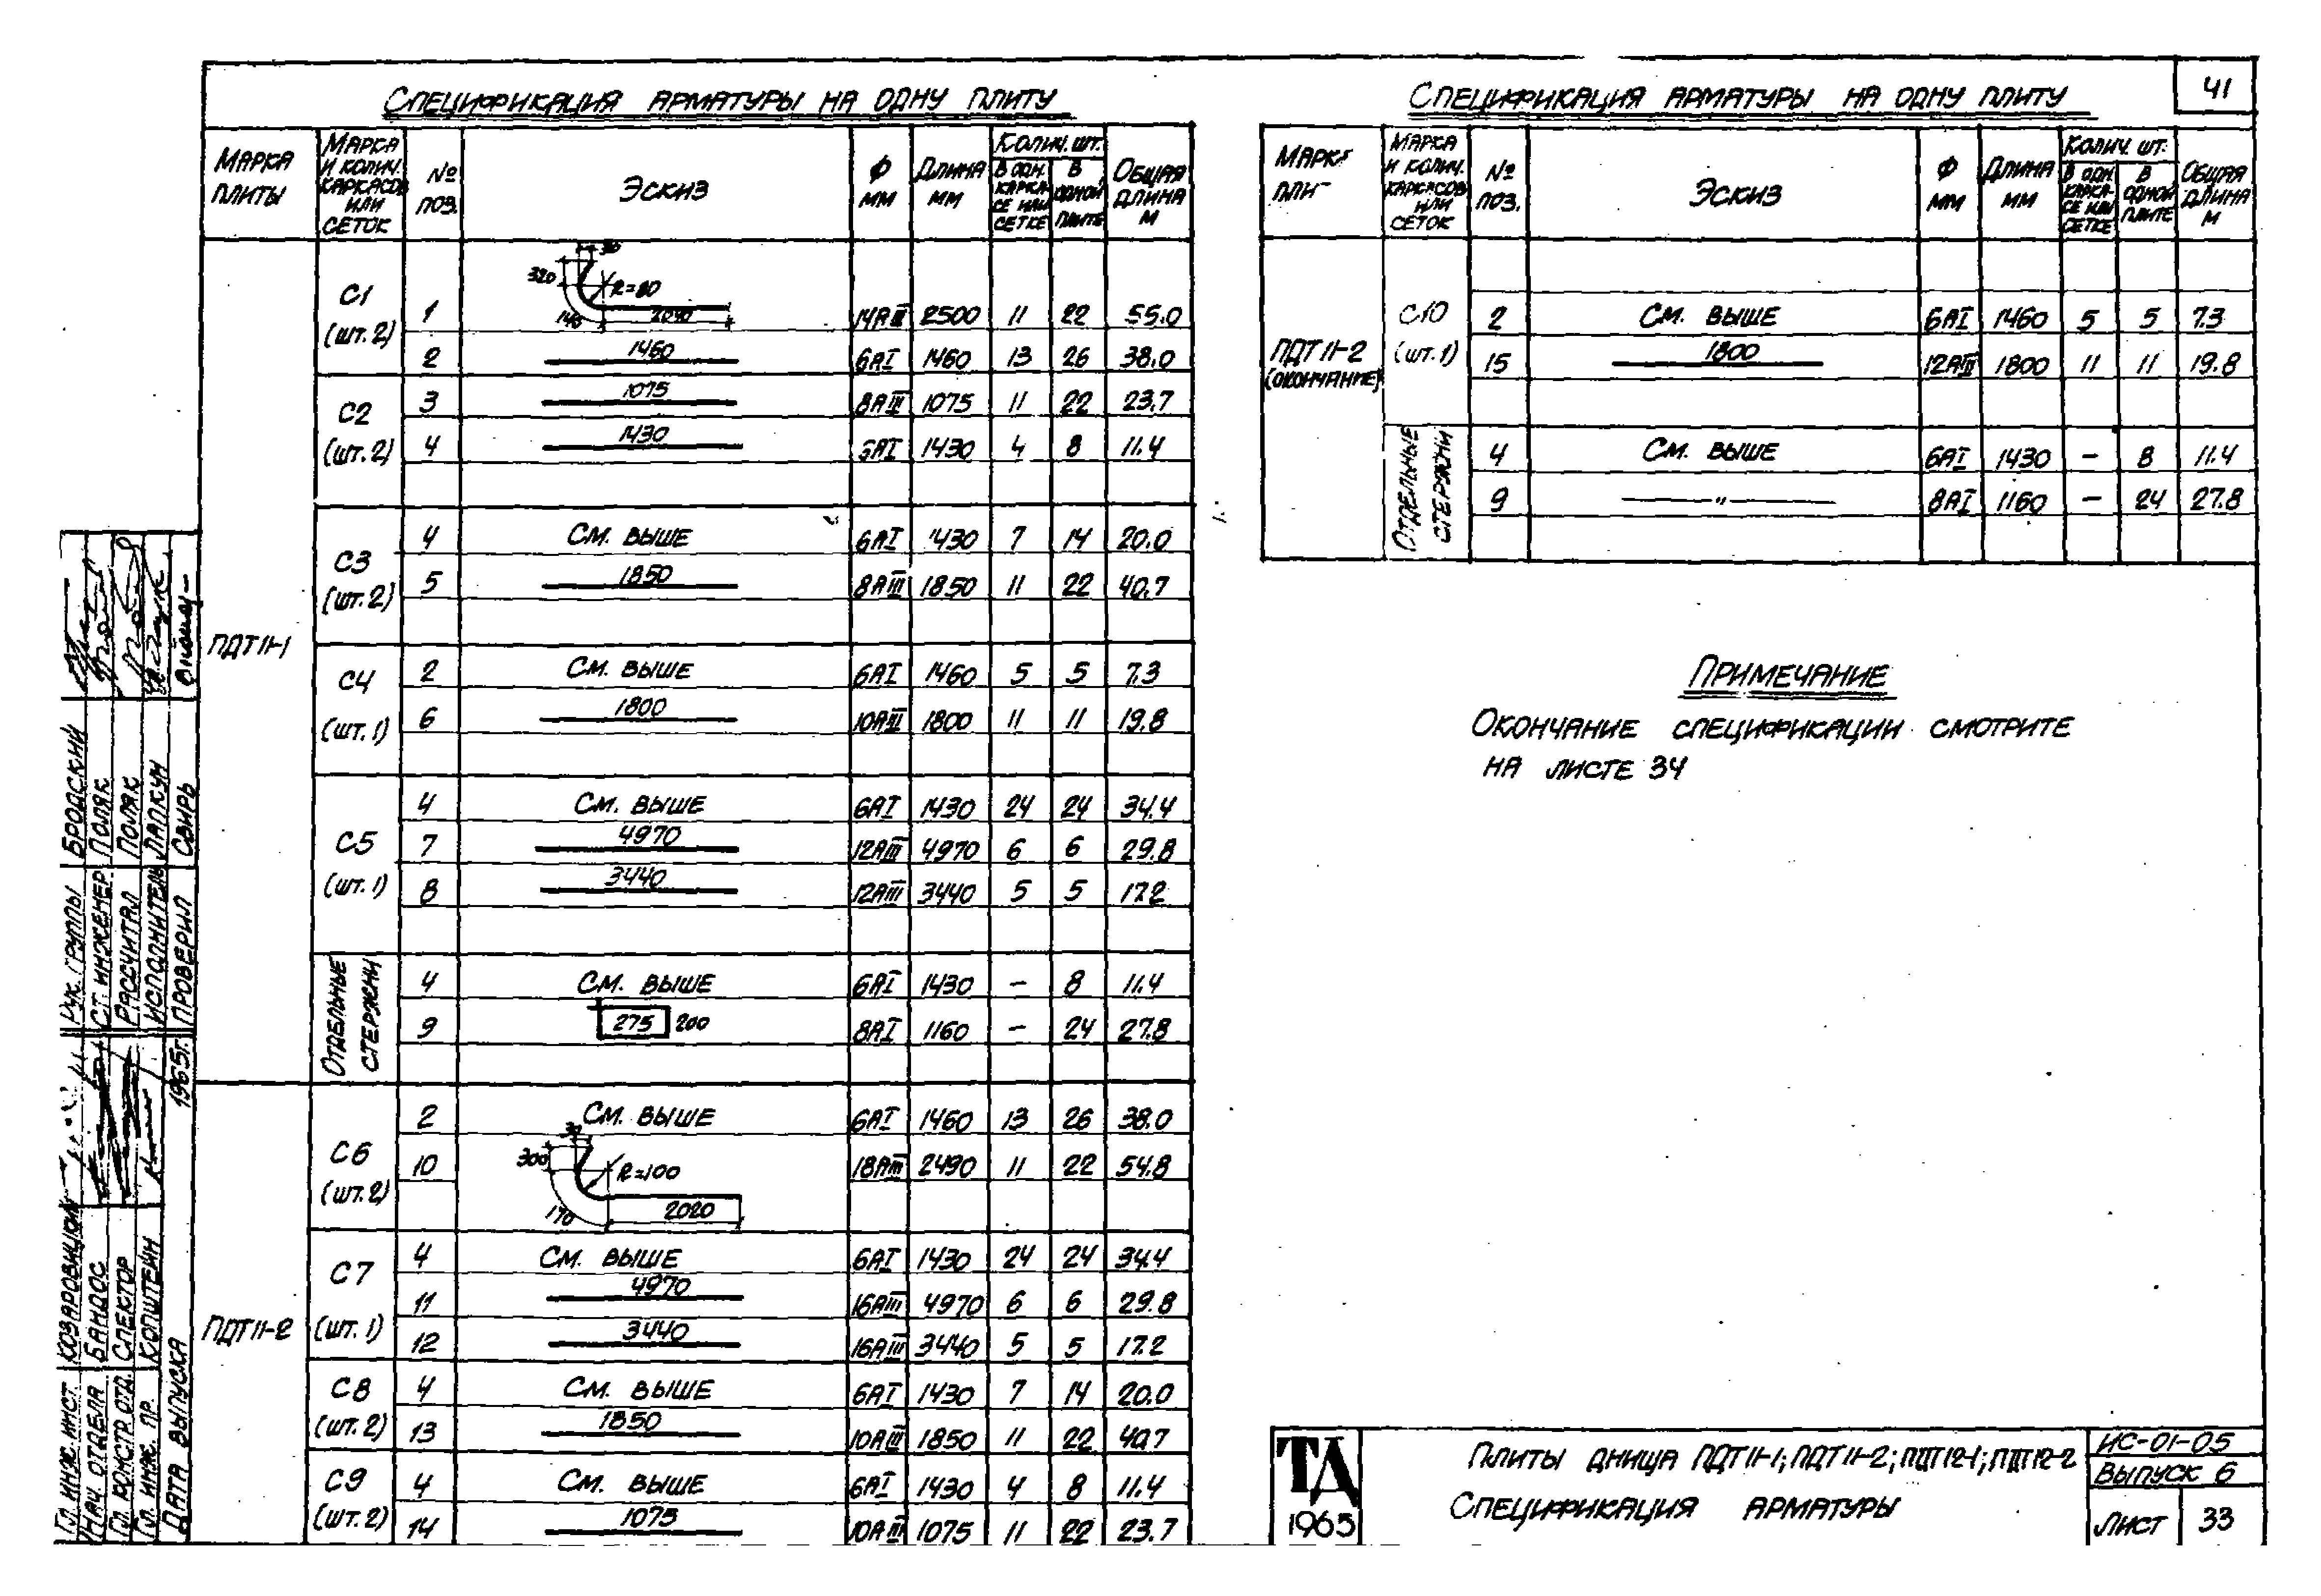 41
Спецификация арматуры на одну плиту
Марка плиты | Марка и колич. каркасов или сеток | № поз. | Эскиз | Ф мм | Длина мм | Колич. шт. | Общая длина м
В одн. каркасе или сетке | В одной плите
ПДТ11-1
С1 (шт. 2)
1 | 30 320 R=80 140 2040 | 14АIII | 2500 | 11 | 22 | 55.0
2 | 1460 | 6АI | 1460 | 13 | 26 | 38.0
С2 (шт. 2)
3 | 1075 | 8АIII | 1075 | 11 | 22 | 23.7
4 | 1430 | 6АI | 1430 | 4 | 8 | 11.4
С3 (шт. 2)
4 | См. выше | 6АI | 1430 | 7 | 14 | 20.0
5 | 1850 | 8АIII | 1850 | 11 | 22 | 40.7
С4 (шт. 1)
2 | См. выше | 6АI | 1460 | 5 | 5 | 7.3
6 | 1800 | 10АIII | 1800 | 11 | 11 | 19.8
С5 (шт. 1)
4 | См. выше | 6АI | 1430 | 24 | 24 | 34.4
7 | 4970 | 12АIII | 4970 | 6 | 6 | 29.8
8 | 3440 | 12АIII | 3440 | 5 | 5 | 17.2
Отдельные стержни
4 | См. выше | 6АI | 1430 | – | 8 | 11.4
9 | 275 200 | 8АI | 1160 | – | 24 | 27.8
ПДТ11-2
С6 (шт. 2)
2 | См. выше | 6АI | 1460 | 13 | 26 | 38.0
10 | 300 R=100 170 2020 | 18АIII | 2490 | 11 | 22 | 54.8
С7 (шт. 1)
4 | См. выше | 6АI | 1430 | 24 | 24 | 34.4
11 | 4970 | 16АIII | 4970 | 6 | 6 | 29.8
12 | 3440 | 16АIII | 3440 | 5 | 5 | 17.2
С8 (шт. 2)
4 | См. выше | 6АI | 1430 | 7 | 14 | 20.0
13 | 1850 | 10АIII | 1850 | 11 | 22 | 40.7
С9 (шт. 2)
4 | См. выше | 6АI | 1430 | 4 | 8 | 11.4
14 | 1075 | 10АIII | 1075 | 11 | 22 | 23.7
Спецификация арматуры на одну плиту
Марка плит | Марка и колич. каркасов или сеток | № поз. | Эскиз | Ф мм | Длина мм | Колич. шт. | Общая длина м
В одн. каркасе или сетке | В одной плите
ПДТ11-2 (окончание)
С10 (шт. 1)
2 | См. выше | 6АI | 1460 | 5 | 5 | 7.3
15 | 1800 | 12АIII | 1800 | 11 | 11 | 19.8
Отдельные стержни
4 | См. выше | 6АI | 1430 | – | 8 | 11.4
9 | —„— | 8АI | 1160 | – | 24 | 27.8
Примечание
Окончание спецификации смотрите
на листе 34
ТА
1965
Плиты днища ПДТ11-1; ПДТ11-2; ПДТ12-1; ПДТ12-2
Спецификация арматуры
ИС-01-05
Выпуск 6
Лист 33
Рук. группы Бродский
Ст. инженер Поляк
Рассчитал Поляк
Исполнитель Лапкун
Проверил Свирь
Гл. инж. инст. Козаровицкий
Нач. отдела Бандос
Гл. констр. отд. Спектор
Гл. инж. пр. Копштейн
Дата выпуска 1965г.